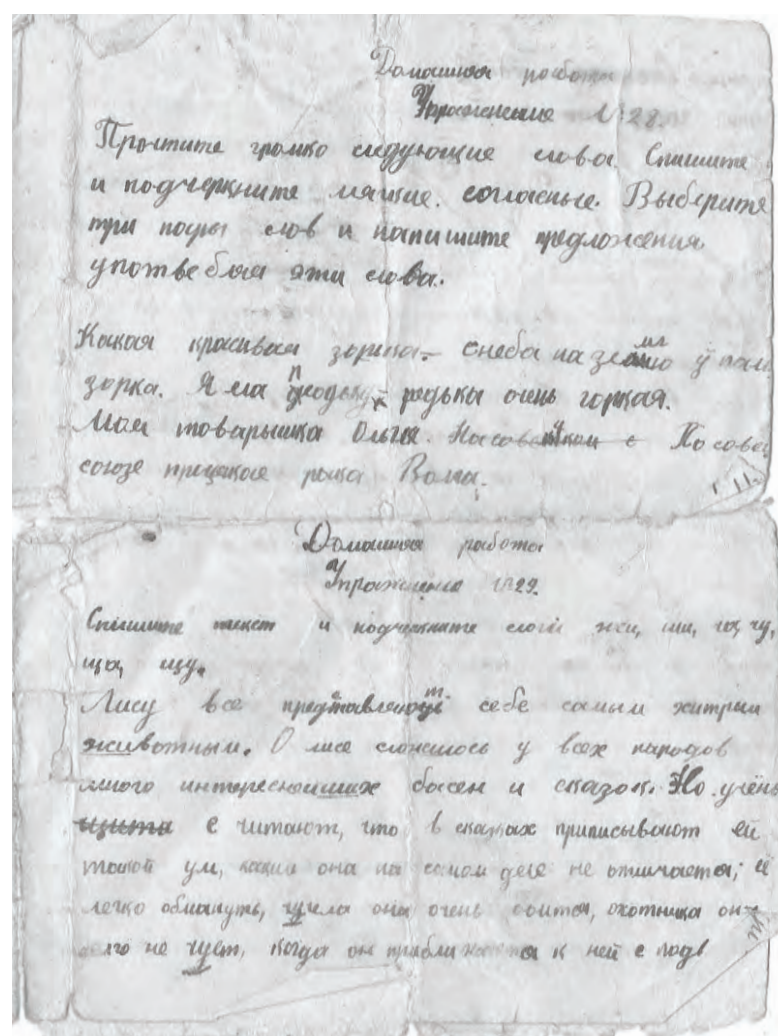 Домашняя работа
Упражнение №28.
Прочтите громко следующие слова. Спишите
и подчеркните мягкие. согласные. Выберите
три пары слов и напишите предложения
употребляя эти слова.
Какая красивая зорька. снеба на землю упал
зорка. Я ела редька очень горкая.
Моя товарышка Ольга. По сове
союзе река Волга.
Домашняя работа
Упражнение №29.
Спишите текст и подчеркните слоги жи, ши, ча, чу,
ща, щу.
Лису все представляют себе самым хитрым
животным. О лисе сложилось у всех народов
много интереснейших басен и сказок. Но учёны
считают, что в сказках приписывают ей
такой ум, каким она на самом деле не отличается; её
легко обмануть, чучела она очень боится, охотника он
долго не чует, когда он приближается к ней с подв